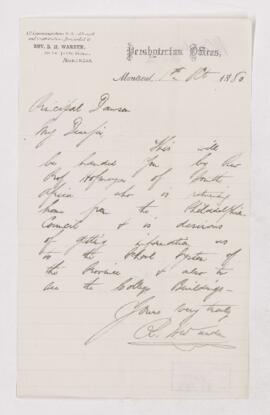 REV. R. H. WARDEN,
MONTREAL
Presbyterian Offices,
Montreal, 1st Oct 1880
Principal Dawson
My Dear Sir
This will
be handed you by Rev
Prof Hofmeyr of South
Africa who is returning
home from the Philadelphia
Council & is desirous
of getting information as
to the School System of
the Province & also to
see the College Buildings —
Yours very truly
R. H. Warden